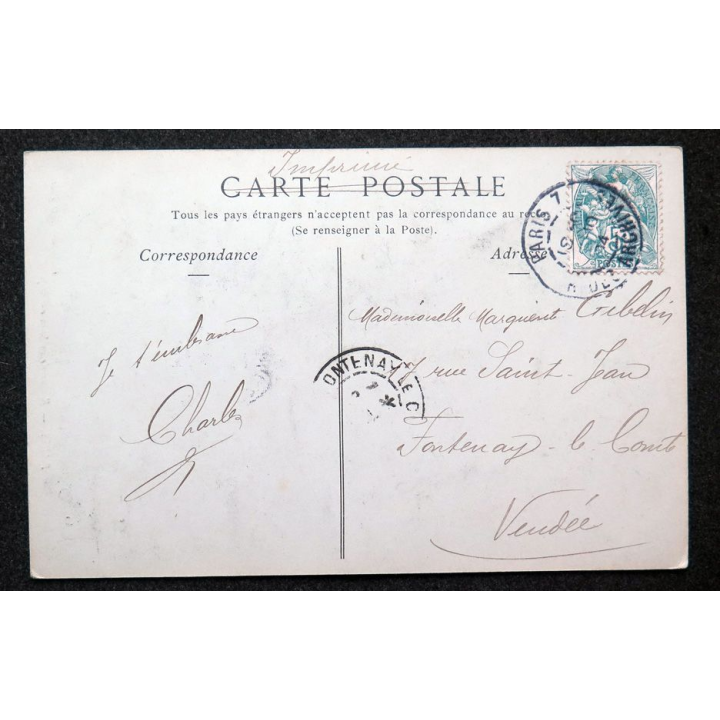 Imprimé
CARTE POSTALE
Tous les pays étrangers n'acceptent pas la correspondance au recto
(Se renseigner à la Poste).
Correspondance
Adresse
Je t'embrasse
Charles
Mademoiselle Marguerite Gibelin
7, rue Saint-Jean
Fontenay-le-Comte
Vendée
PARIS 7
R. DES ARCHIVES
ONTENAY LE C